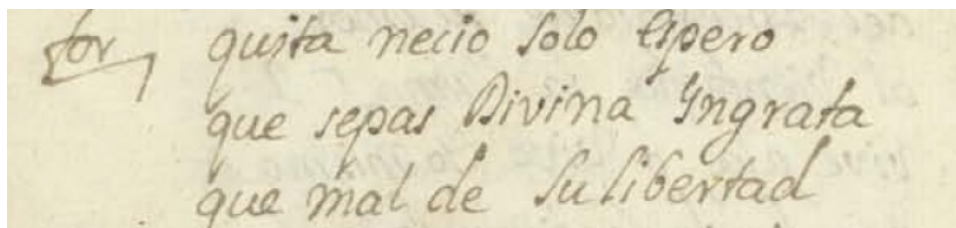 for, quita necio solo Espero
que sepas Divina Yngrata
que mal de su libertad